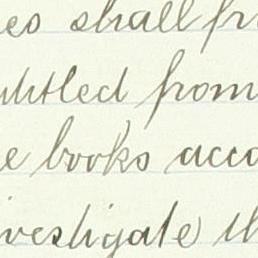 es shall fr
ubtled from
e books acco
vestigate th